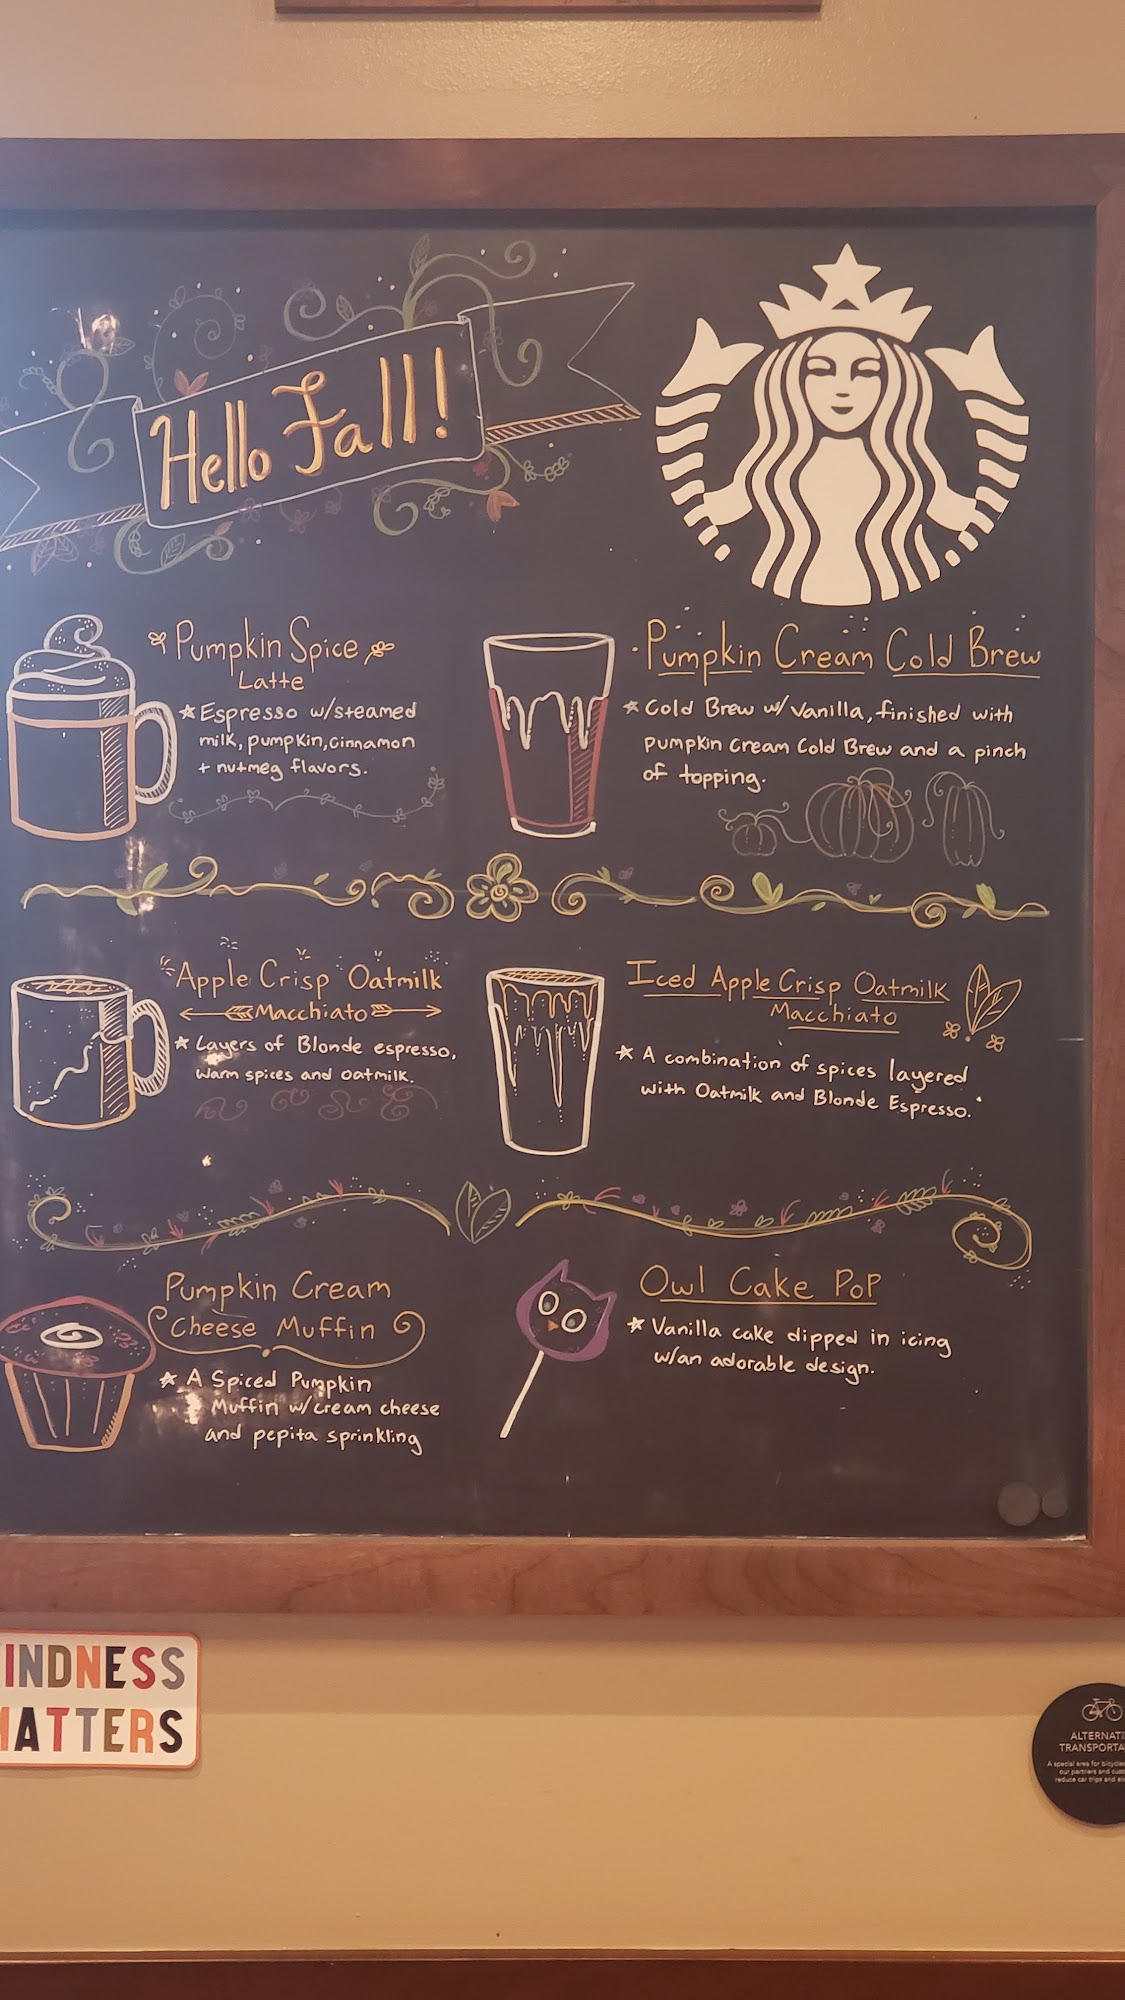 Hello Fall!
Pumpkin Spice
Latte
Espresso w/steamed
milk, pumpkin, cinnamon
+ nutmeg flavors.
Pumpkin Cream Cold Brew
Cold Brew w/ Vanilla, finished with
pumpkin cream Cold Brew and a pinch
of topping.
Apple Crisp Oatmilk
Macchiato
Layers of Blonde espresso,
warm spices and oatmilk.
Iced Apple Crisp Oatmilk
Macchiato
A combination of spices layered
with Oatmilk and Blonde Espresso.
Pumpkin Cream
Cheese Muffin
A Spiced Pumpkin
Muffin w/cream cheese
and pepita sprinkling
Owl Cake Pop
Vanilla cake dipped in icing
w/an adorable design.
INDNESS
MATTERS
ALTERNATI
TRANSPORTA
A special area for bicycles
our partners and cust
reduce car trips and